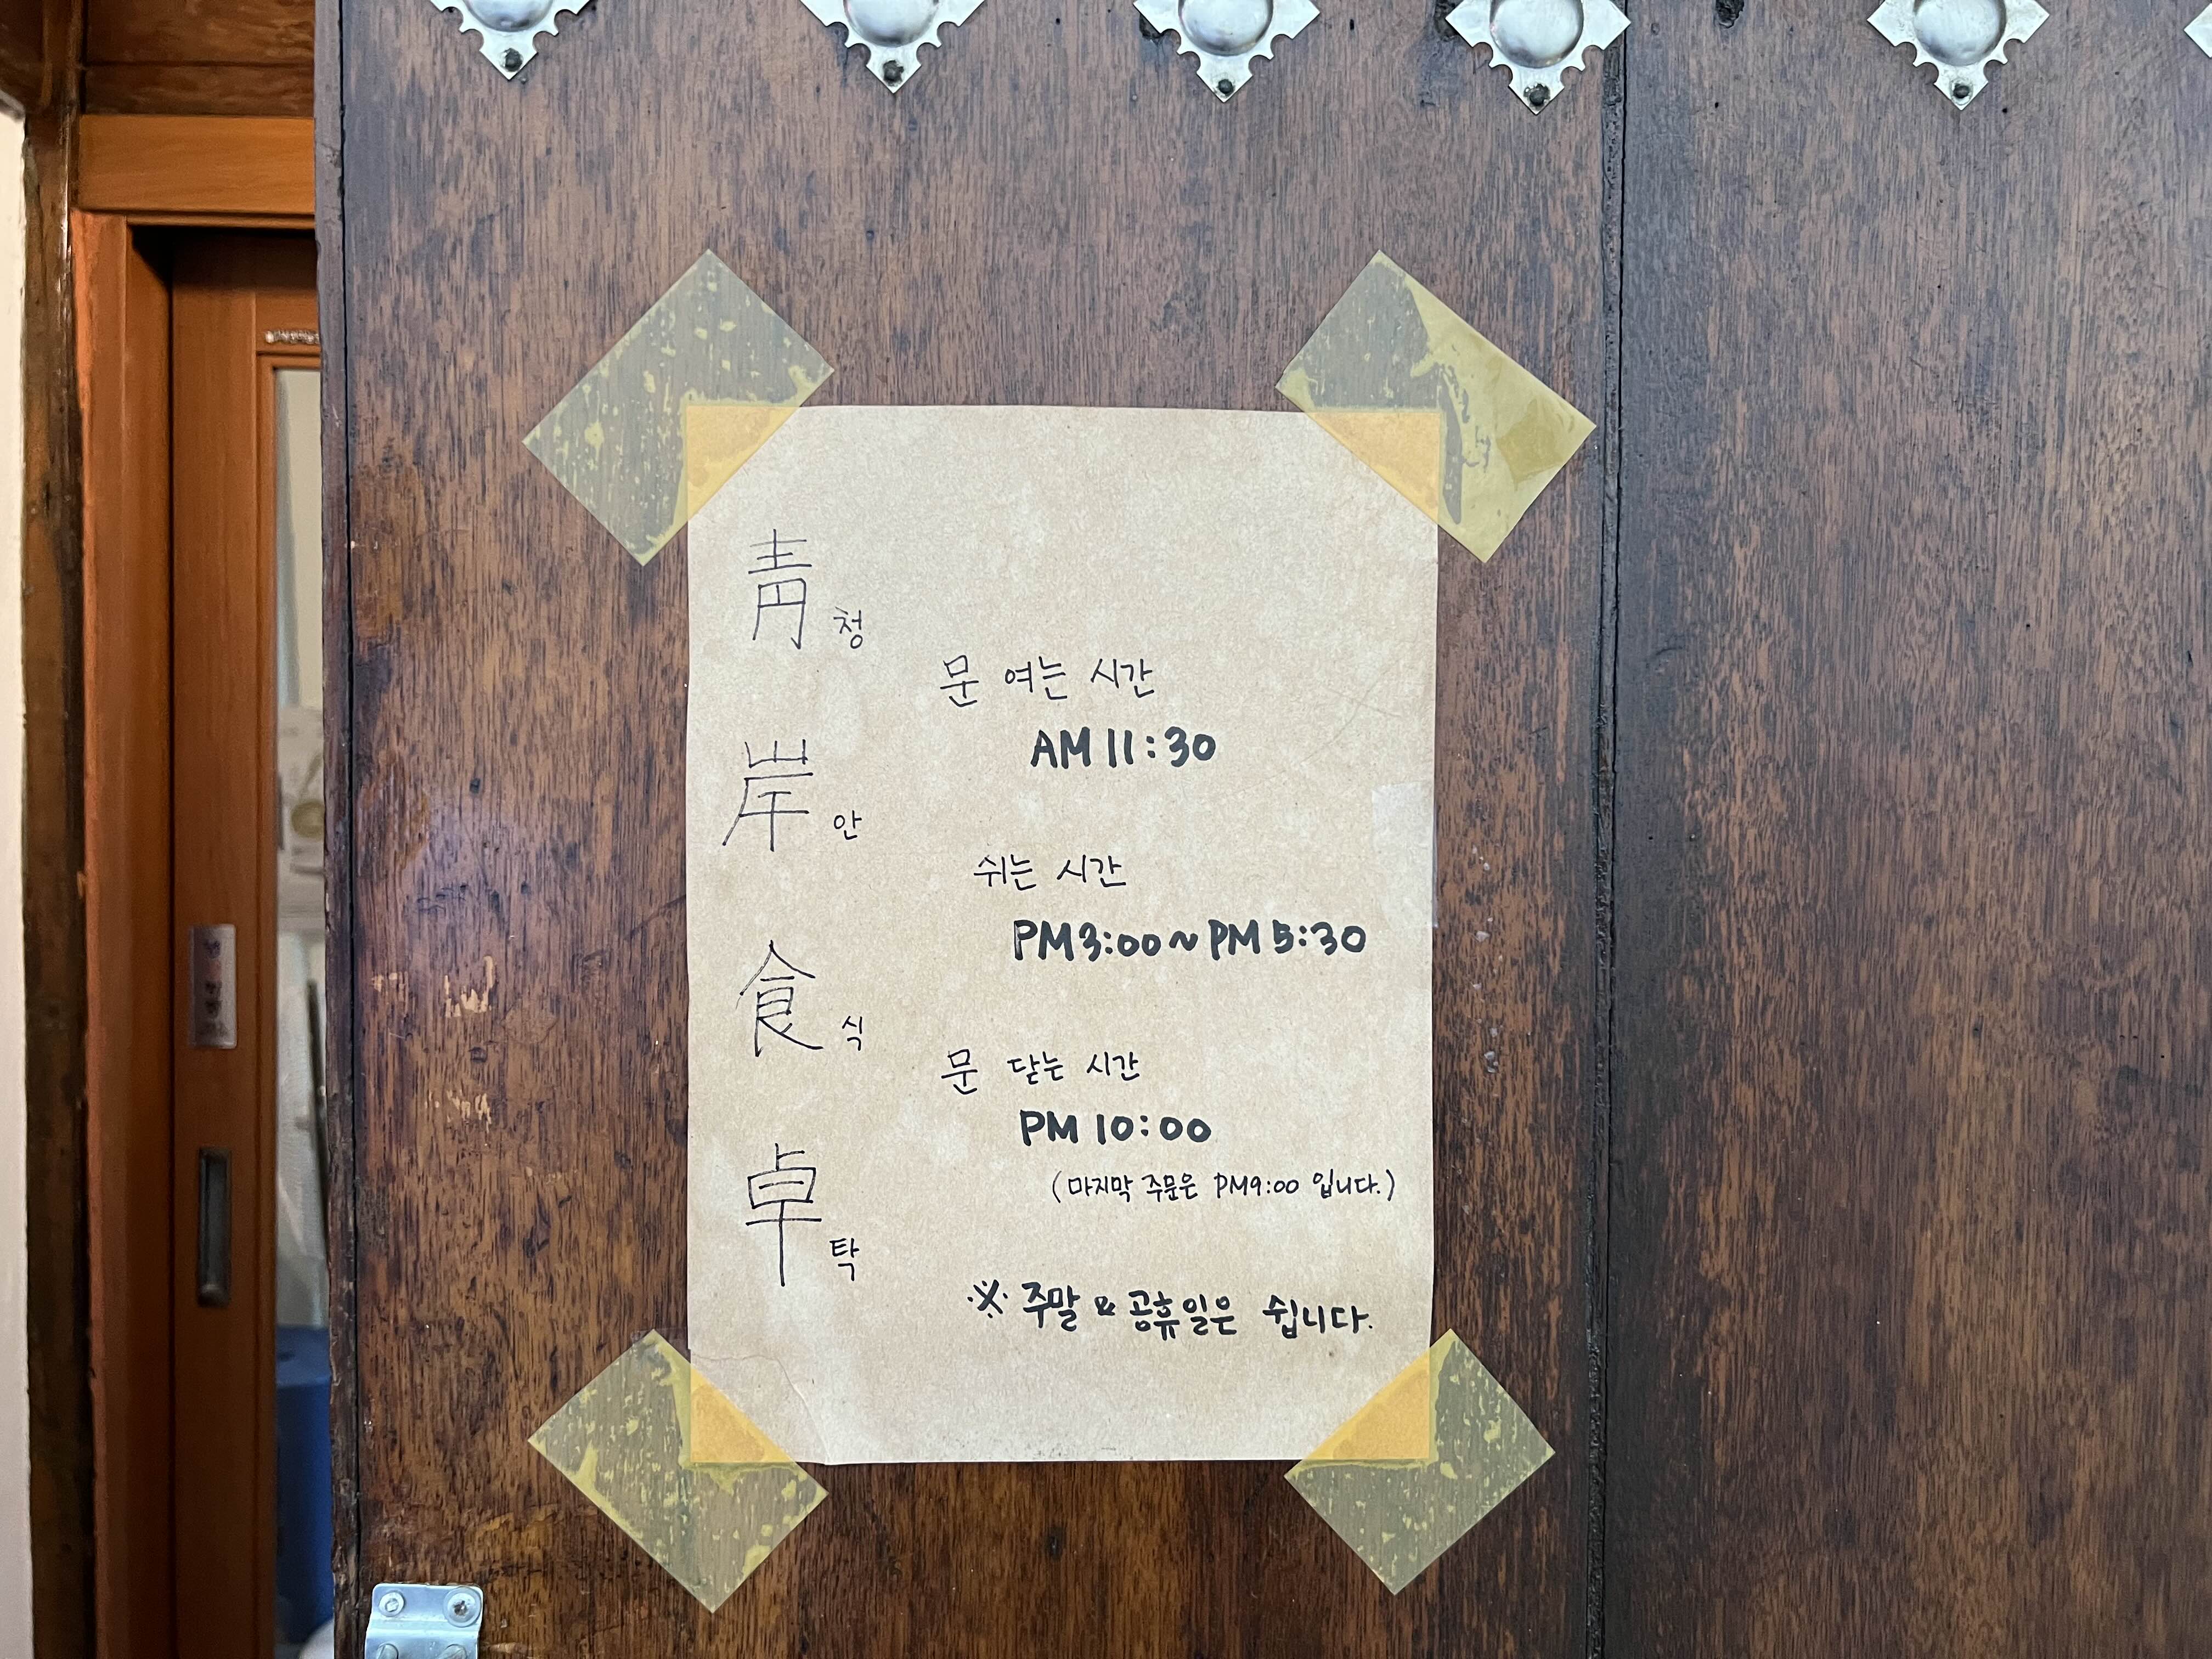 靑 청
岸 안
食 식
卓 탁
문 여는 시간
AM 11:30
쉬는 시간
PM 3:00 ~ PM 5:30
문 닫는 시간
PM 10:00
(마지막 주문은 PM 9:00 입니다.)
※ 주말 & 공휴일은 쉽니다.